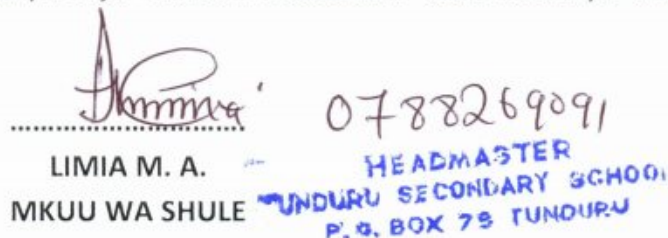 0788269091
LIMIA M. A.
MKUU WA SHULE
HEADMASTER
TUNDURU SECONDARY SCHOOL
P. O. BOX 78 TUNDURU